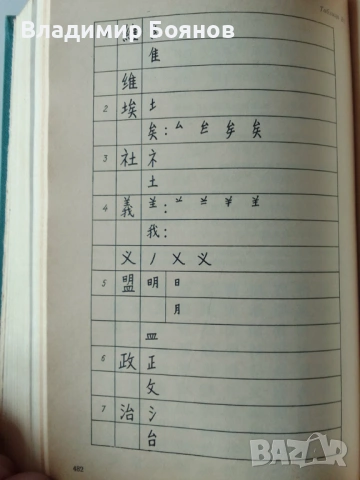 Владимир Боянов
隹
維
2 埃 土
矣: 厶 矣
3 社 礻
土
4 義 𦍌:
我:
义 丿 乂 义
5 盟 明 日
月
皿
6 政 正
攵
7 治 氵
台
482
BAZAR